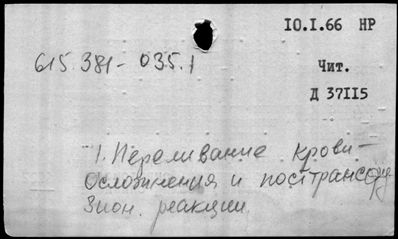 10.I.66 НР
615.381-035.1
Чит.
Д 37115
1. Переливание крови -
Осложнения и посттрансфу
Зион. реакции.